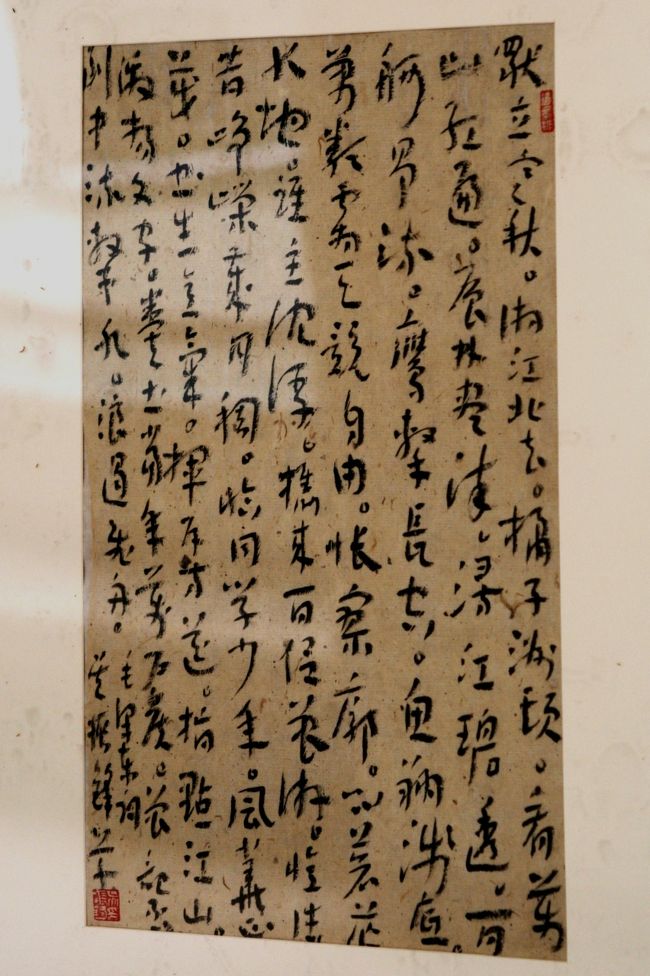 獨立寒秋。湘江北去。橘子洲頭。看萬
山紅遍。層林盡染、漫江碧透。百
舸爭流。鷹擊長空。魚翔淺底。
萬類霜天競自由。悵寥廓。問蒼茫
大地。誰主沈浮。攜來百侶曾游。憶往
昔崢嶸歲月稠。恰同学少年。風華正
茂。書生意氣。揮斥方遒。指點江山。
激揚文字。糞土當年萬户侯。曾記否
到中流擊水。浪遏飛舟。
毛澤東詞
吳振鋒